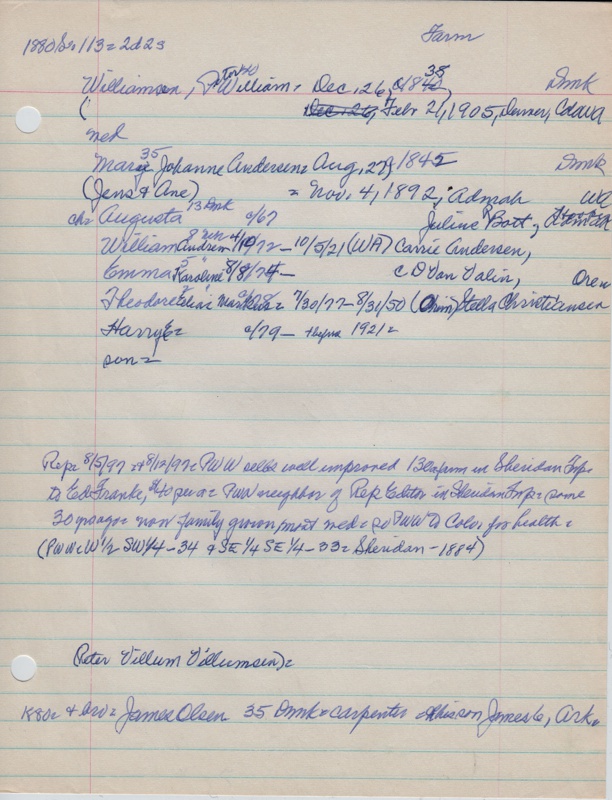 Farm
1880 Se 113 = 2d 2s
Williamsen, Peter William = Dec. 26, 1842 35 Dmk
( Dec. 26, Febr 21, 1905, Denver, Colo
ned
Marie 35 Johanne Andersen = Aug. 27, 1845 Dmk
(Jens & Ane) = Nov. 4, 1892, Admah
ch = Augusta 13 Dmk 0/67 Julius Bott,
William Andrew 8 4/10/72 – 10/5/21 (WA) Carrie Andersen,
Emma Karoline 5 8/8/74 – C D Van Valin, Oren
Theodore = 7/30/77 – 8/31/50 (Chim) Stella Christiansen
Harry E = 0/79 – 1921 =
son =
Rep = 8/5/97 & 8/12/97 = PWW sells well improved farm in Sheridan Twp
to Ed Franke, $40 per a = PWW neighbor of Rep Editor in Sheridan Twp = some
30 yrs ago = now family grown, most ned = so PWW to Colo, for health =
(PWW = W 1/2 SW 1/4 – 34 & SE 1/4 SE 1/4 – 33 = Sheridan – 1884)
(Peter Villum Villumsen) =
1880 = & bro = James Olsen 35 Dmk = carpenter son James 6, Ark.